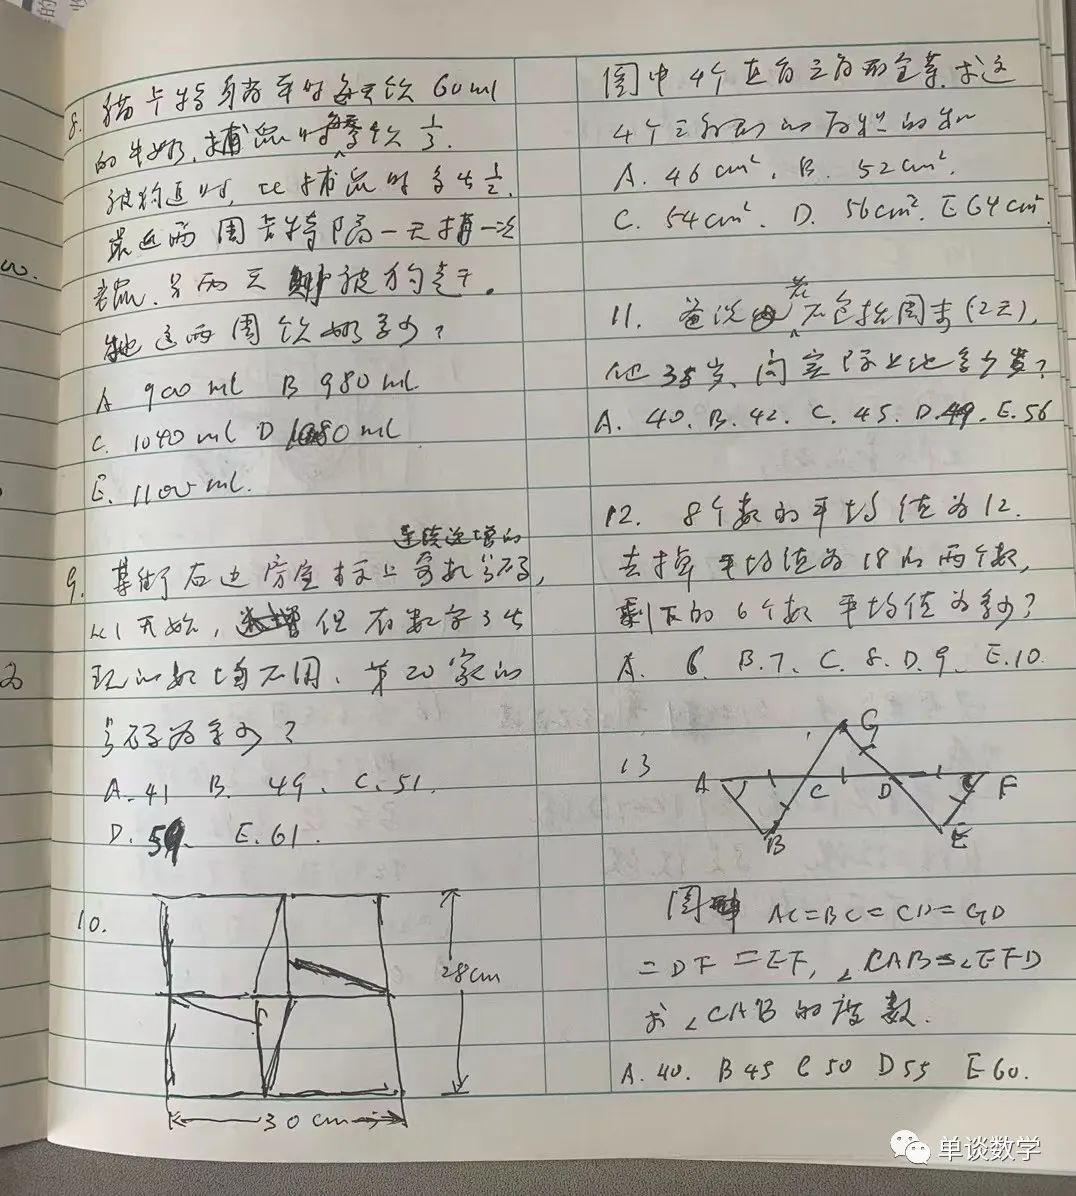 8. 猫卡特身为平时每天饮 60ml
的牛奶, 捕鼠时每饮 1/3.
被狗追时, 比捕鼠时多出 1/2.
最近两周卡特隔一天捕一次
老鼠. 另两天 被狗追.
他这两周饮奶多少?
A 900 ml B 980 ml
C. 1040 ml D 1080 ml
E. 1100 ml.
9. 某街右边房屋标上连续递增的奇数号码,
以1开始, 但有数字3出
现的数均不用. 第20家的
号码为多少?
A. 41 B. 49. C. 51.
D. 59. E. 61.
10.
28cm
30cm
图中4个直角三角形全等. 求这
4个三角形的面积的和
A. 46 cm². B. 52 cm².
C. 54 cm². D. 56 cm². E 64 cm².
11. 爸说若不包括周末(2天),
他35岁. 问实际上他多少岁?
A. 40. B. 42. C. 45. D. 49. E. 56
12. 8个数的平均值为12.
去掉平均值为18的两个数,
剩下的6个数平均值为多少?
A. 6. B. 7. C. 8. D. 9. E. 10.
13
A B C D E F G
图 AC=BC=CD=GD
=DF=EF, ∠CAB=∠EFD
求∠CAB的度数.
A. 40. B 45 C 50 D 55 E 60.
单谈数学